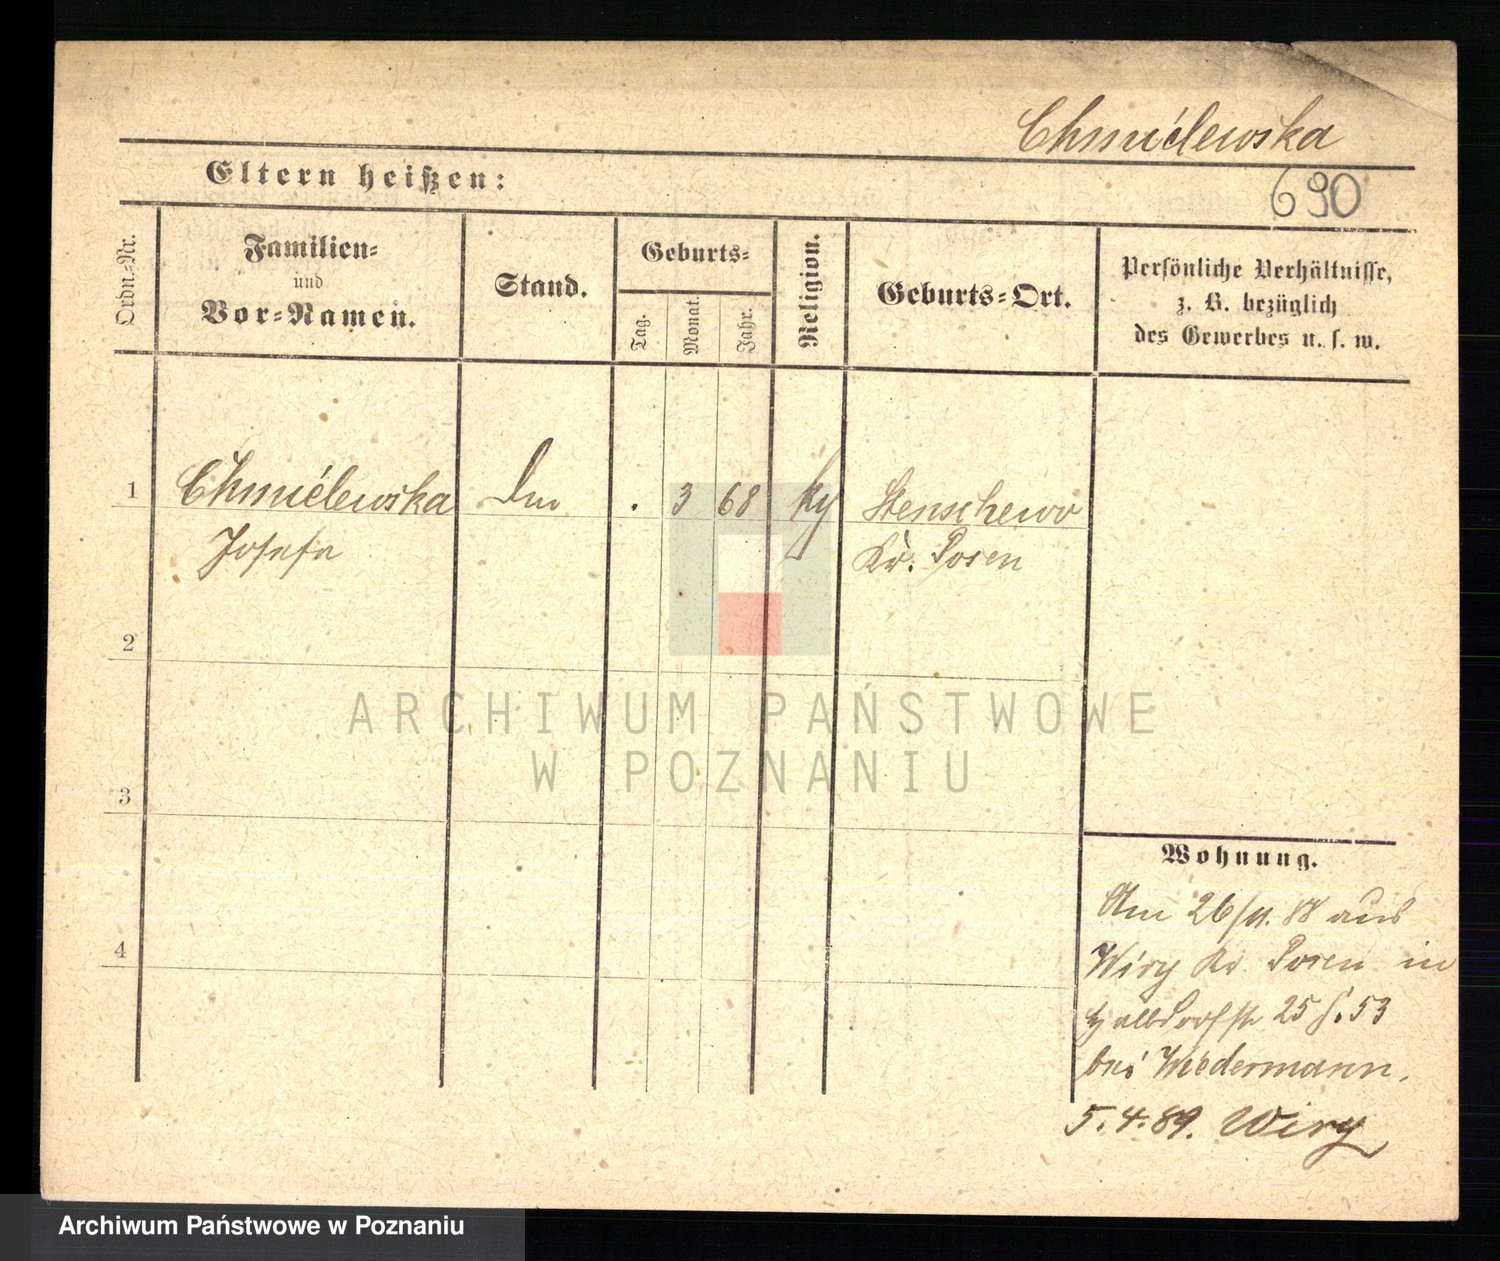 Chmielewska
Eltern heißen:
690
Ordn.=Nr.
Familien=
und
Vor=Namen.
Stand.
Geburts=
Tag.
Monat.
Jahr.
Religion.
Geburts=Ort.
Persönliche Verhältnisse,
z. B. bezüglich
des Gewerbes u. s. w.
1
Chmielewska
Josefa
. 3 68
Stenschewo
Kr. Posen
2
ARCHIWUM PAŃSTWOWE
W POZNANIU
3
Wohnung.
4
Am 26/11. 88 aus
Wiry Kr. Posen in
Halbdorfstr 25 53
bei Wiedermann.
5.4.89. Wiry
Archiwum Państwowe w Poznaniu